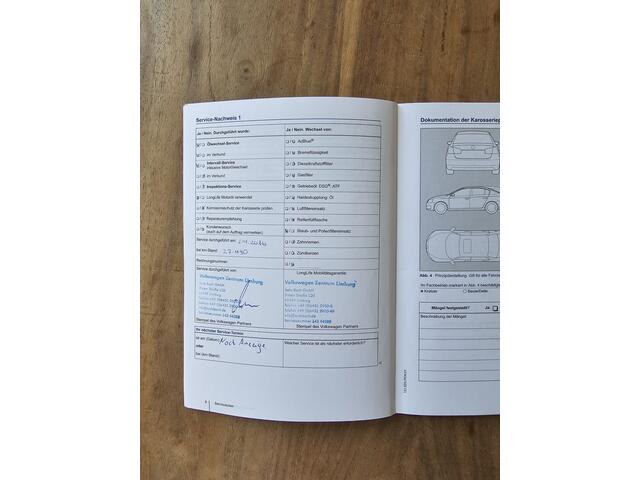 Service-Nachweis 1
Ja / Nein. Durchgeführt wurde:
Ölwechsel-Service
im Verbund
Intervall-Service
inklusive Motorölwechsel
im Verbund
Inspektions-Service
LongLife Motoröl verwendet
Korrosionsschutz der Karosserie prüfen
Reparaturempfehlung
Kundenwunsch
(auch auf dem Auftrag vermerken)
Service durchgeführt am:
bei km-Stand:
Rechnungsnummer:
Service durchgeführt von:
Volkswagen Zentrum Limburg
Stempel des Volkswagen Partners
Ja / Nein. Wechsel von:
AdBlue®
Bremsflüssigkeit
Dieselkraftstofffilter
Gasfilter
Getriebeöl: DSG®, ATF
Haldexkupplung: Öl
Luftfiltereinsatz
Reifenfüllflasche
Staub- und Pollenfiltereinsatz
Zahnriemen
Zündkerzen
LongLife Mobilitätsgarantie:
Volkswagen Zentrum Limburg
Stempel des Volkswagen Partners
Ihr nächster Service-Termin
ist am (Datum): Nach Anzeige
oder
bei (km-Stand):
Welcher Service ist als nächster erforderlich?
Serviceplan
Dokumentation der Karosseriep
Abb. 4 Prinzipdarstellung: Gilt für alle Fahrze
Ihr Fachbetrieb markiert in Abb. 4 beschädigte
Kratzer
Beule/Delle
Mängel festgestellt? Ja
Beschreibung der Mängel: